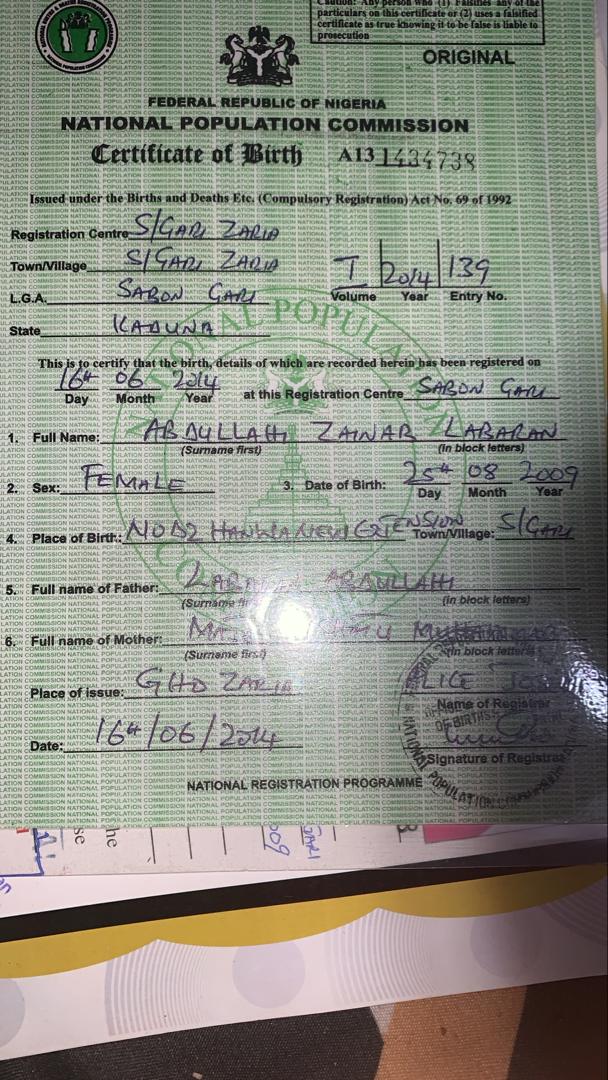 Caution: Any person who (1) Falsifies any of the
particulars on this certificate or (2) uses a falsified
certificate as true knowing it to be false is liable to
prosecution
ORIGINAL
FEDERAL REPUBLIC OF NIGERIA
NATIONAL POPULATION COMMISSION
Certificate of Birth A13 1434738
Issued under the Births and Deaths Etc. (Compulsory Registration) Act No. 69 of 1992
Registration Centre S/GARI ZARIA
Town/Village S/GARI ZARIA
I 2014 139
Volume Year Entry No.
L.G.A. SABON GARI
State KADUNA
This is to certify that the birth, details of which are recorded herein has been registered on
16th 06 2014 at this Registration Centre SABON GARI
Day Month Year
1. Full Name: ABDULLAHI ZAINAB LABARAN
(Surname first) (in block letters)
2. Sex: FEMALE 3. Date of Birth: 25th 08 2009
Day Month Year
4. Place of Birth: NO D2 HANWA NEW EXTENSION Town/Village: S/GARI
5. Full name of Father: ABDULLAHI
(Surname (in block letters)
6. Full name of Mother:
(Surname first) (in block letters)
Place of issue: GHD ZARIA
Name of Registrar
Date: 16th/06/2014
Signature of Registrar
NATIONAL REGISTRATION PROGRAMME